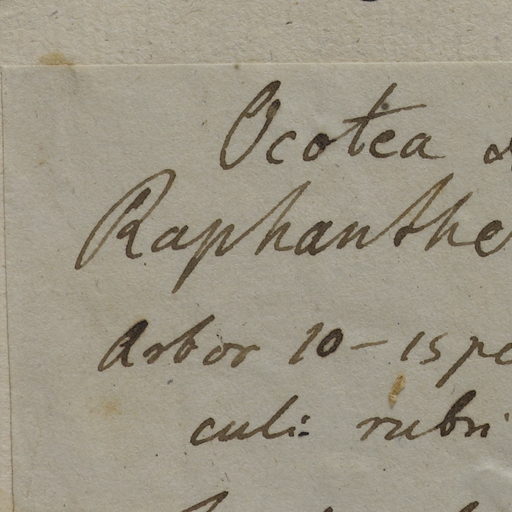 Ocotea
Raphanthe
Arbor 10-15 pe
culi: rubri